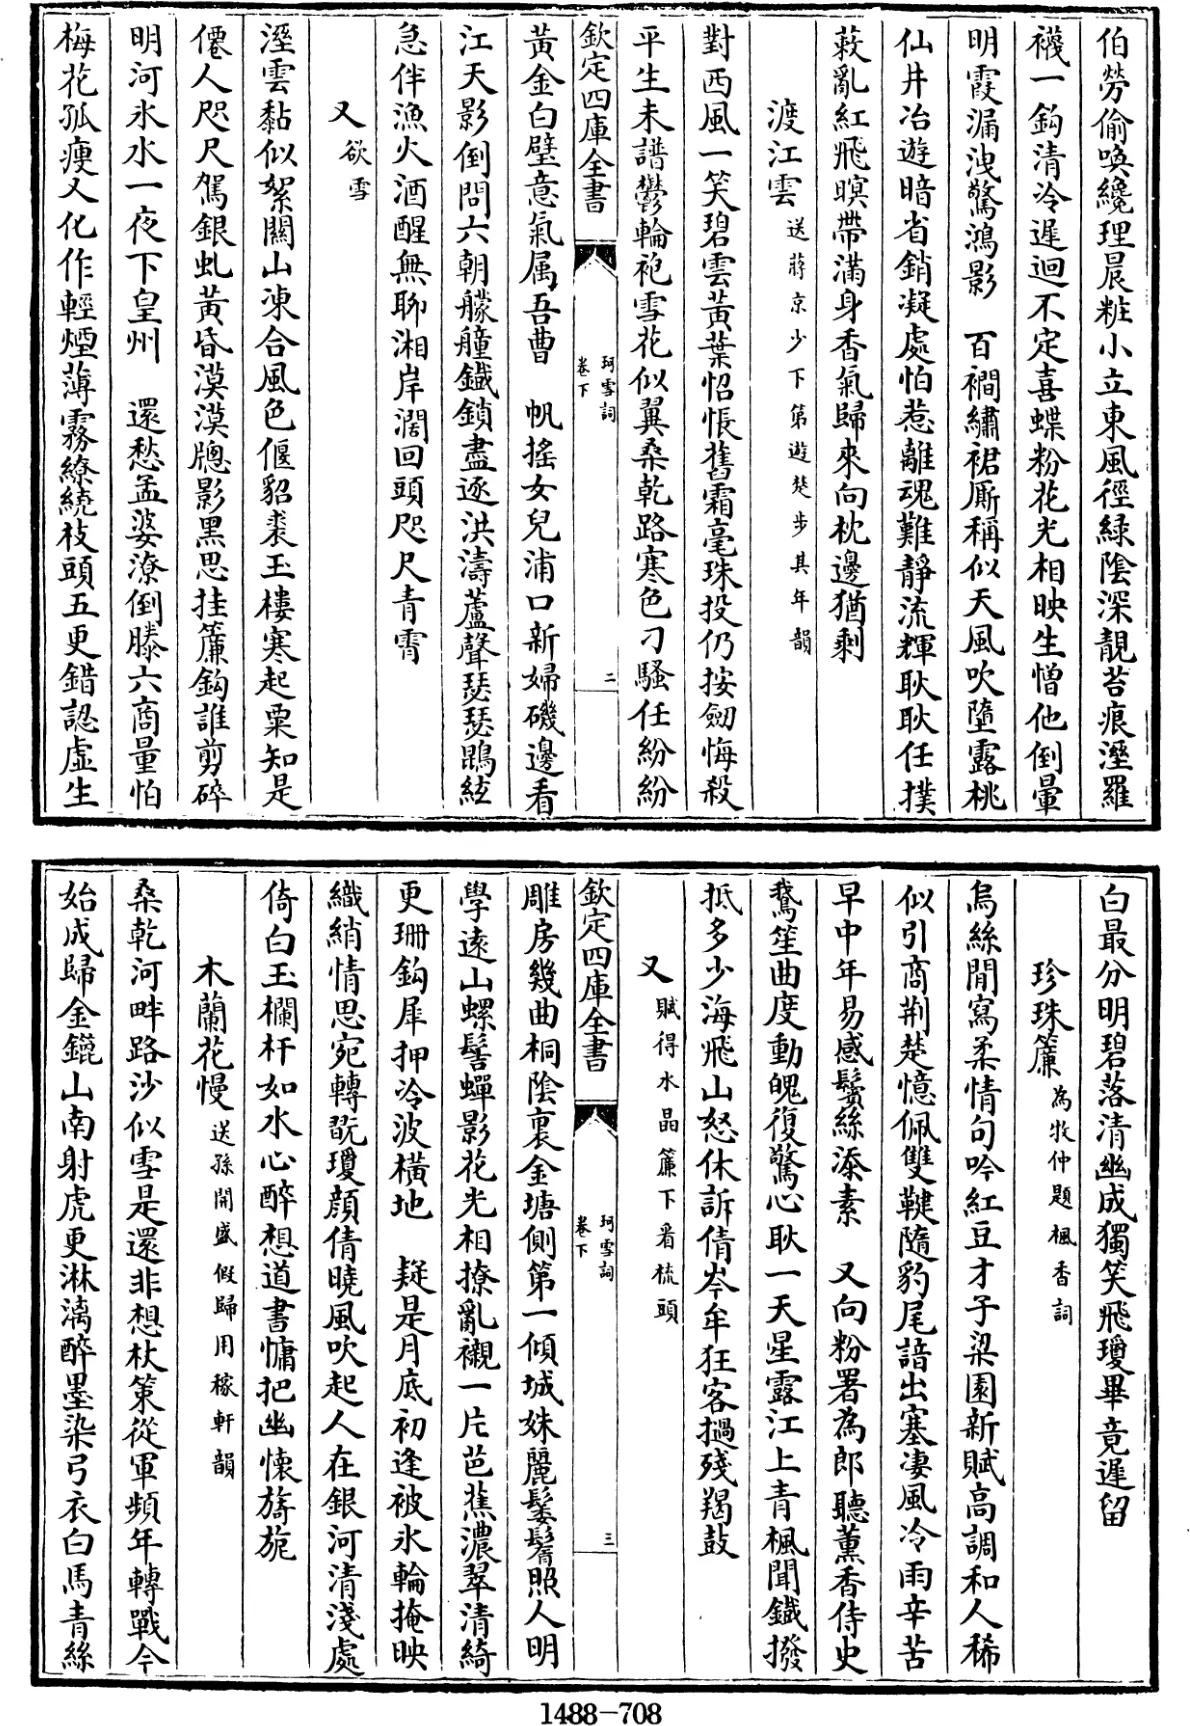 伯勞偷喚纔理晨粧小立東風徑綠陰深靚苔痕溼羅
襪一鈎清冷遲迴不定喜蝶粉花光相映生憎他倒暈
明霞漏洩驚鴻影　百襇繡裙厮稱似天風吹墮露桃
仙井冶遊暗省銷凝處怕惹離魂難靜流輝耿耿任撲
蔌亂紅飛暝帶滿身香氣歸來向枕邊猶剩
渡江雲 送蔣京少下第遊楚步其年韻
對西風一笑碧雲黃葉怊悵舊霜毫珠投仍按劒悔殺
平生未譜鬱輪袍雪花似翼桑乾路寒色刁騷任紛紛
欽定四庫全書 珂雪詞 卷下 二
黃金白璧意氣属吾曹　帆搖女兒浦口新婦磯邊看
江天影倒問六朝艨艟鐵鎖盡逐洪濤蘆聲瑟瑟鵾絃
急伴漁火酒醒無聊湘岸濶回頭咫尺青霄
又 欲雪
溼雲黏似絮關山凍合風色偃貂裘玉樓寒起粟知是
僊人咫尺駕銀虬黃昏漠漠牕影黑思挂簾鈎誰剪碎
明河氷水一夜下皇州　還愁孟婆潦倒滕六商量怕
梅花孤瘦又化作輕煙薄霧繚繞枝頭五更錯認虛生
白最分明碧落清幽成獨笑飛瓊畢竟遲留
珍珠簾 為牧仲題楓香詞
烏絲閒寫柔情句吟紅豆才子梁園新賦高調和人稀
似引商荆楚憶佩雙鞬隨豹尾諳出塞凄風冷雨辛苦
早中年易感鬢絲添素　又向粉署為郎聽薰香侍史
鵞笙曲度動魄復驚心耿一天星露江上青楓聞鐵撥
抵多少海飛山怒休訴倩岑牟狂客撾殘羯鼓
又 賦得水晶簾下看梳頭
欽定四庫全書 珂雪詞 卷下 三
雕房幾曲桐陰裏金塘側第一傾城姝麗鬖髿照人明
學遠山螺髻蟬影花光相撩亂襯一片芭蕉濃翠清綺
更珊鈎犀押冷波橫地　疑是月底初逢被氷輪掩映
織綃情思宛轉翫瓊顔倩曉風吹起人在銀河清淺處
倚白玉欄杆如水心醉想道書慵把幽懷旖旎
木蘭花慢 送孫開盛假歸用稼軒韻
桑乾河畔路沙似雪是還非想杖策從軍頻年轉戰今
始成歸金鎞山南射虎更淋漓醉墨染弓衣白馬青絲
1488-708